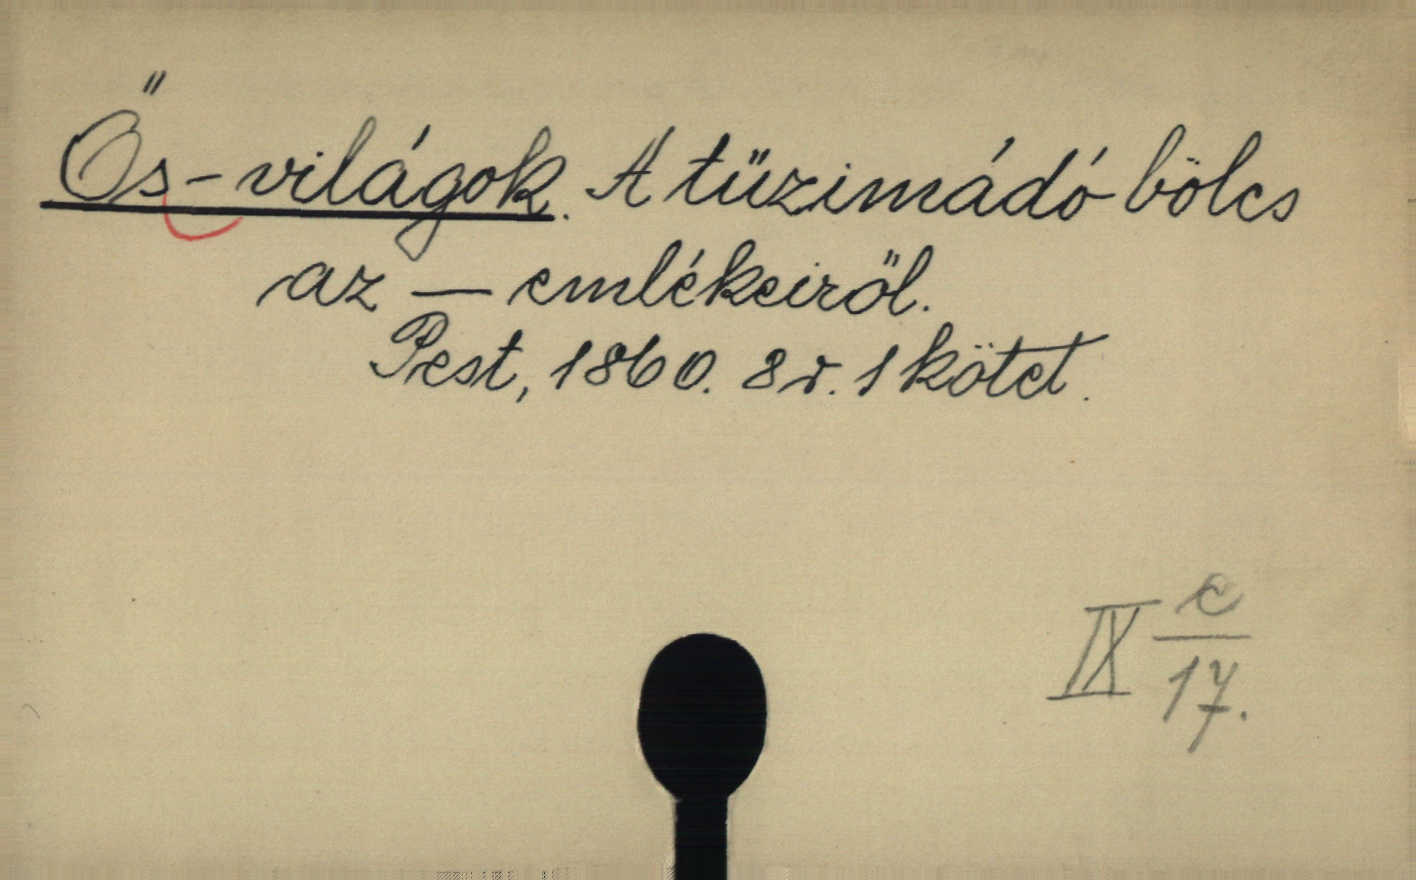 Ős-világok. A tűzimádó bölcs
az — emlékeiről.
Pest, 1860. 8r. 1 kötet.
IX c/17.